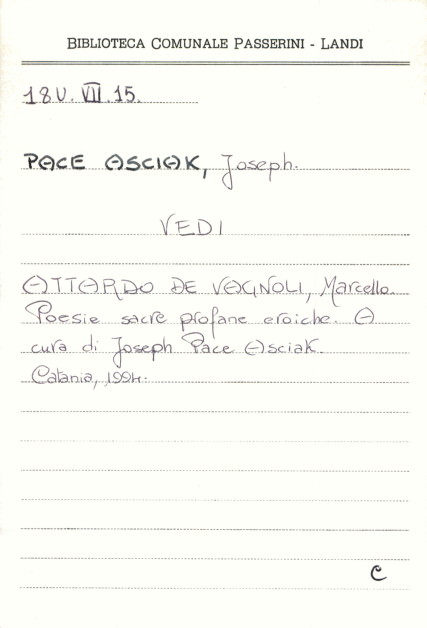 BIBLIOTECA COMUNALE PASSERINI - LANDI
18U. VII. 15.
PACE ASCIAK, Joseph.
VEDI
ATTARDO DE VAGNOLI, Marcello.
Poesie sacre profane eroiche. A
cura di Joseph Pace Asciak.
Catania, 1994.
C